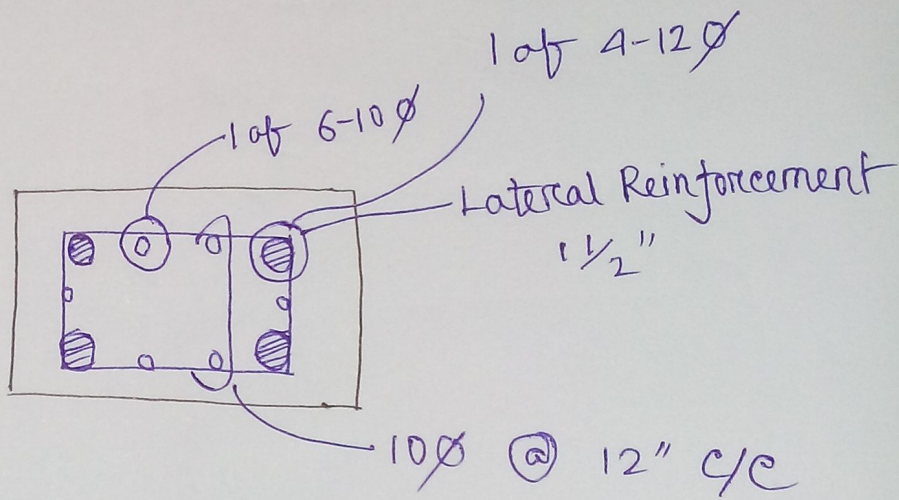 1 of 4-12ø
1 of 6-10ø
Lateral Reinforcement
1 1/2"
10ø @ 12" c/c